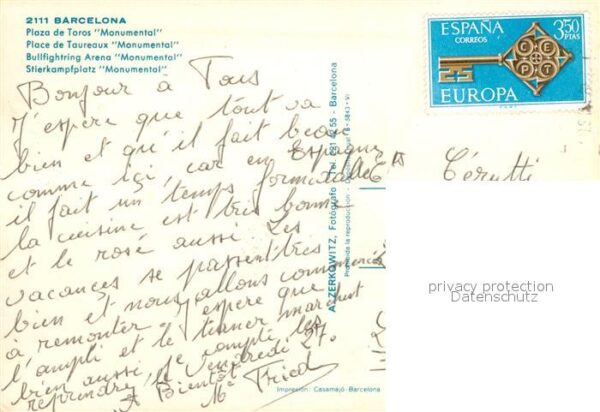 2111 BARCELONA
Plaza de Toros "Monumental"
Place de Taureaux "Monumental"
Bullfightring Arena "Monumental"
Stierkampfplatz "Monumental"
ESPAÑA
CORREOS
3,50
PTAS
CEPT
EUROPA
Bonjour à Tous
J'espere que tout va
bien et qu'il fait beau
comme içi car en Espagne
il fait un temps formidable
la cuisine est très bonne
et le rosé aussi Les
vacances se passent très
bien et nous allons commencé
à remonter. J'espère que
l'ampli et le tuner marchent
bien aussi, je compte les
reprendre le vendredi 27.
A Bientôt
Mc Fried
Cérutti
A. ZERKOWITZ, Fotógrafo - Barcelona
Prohibida la reproducción
Impresión: Casamajó-Barcelona
privacy protection
Datenschutz